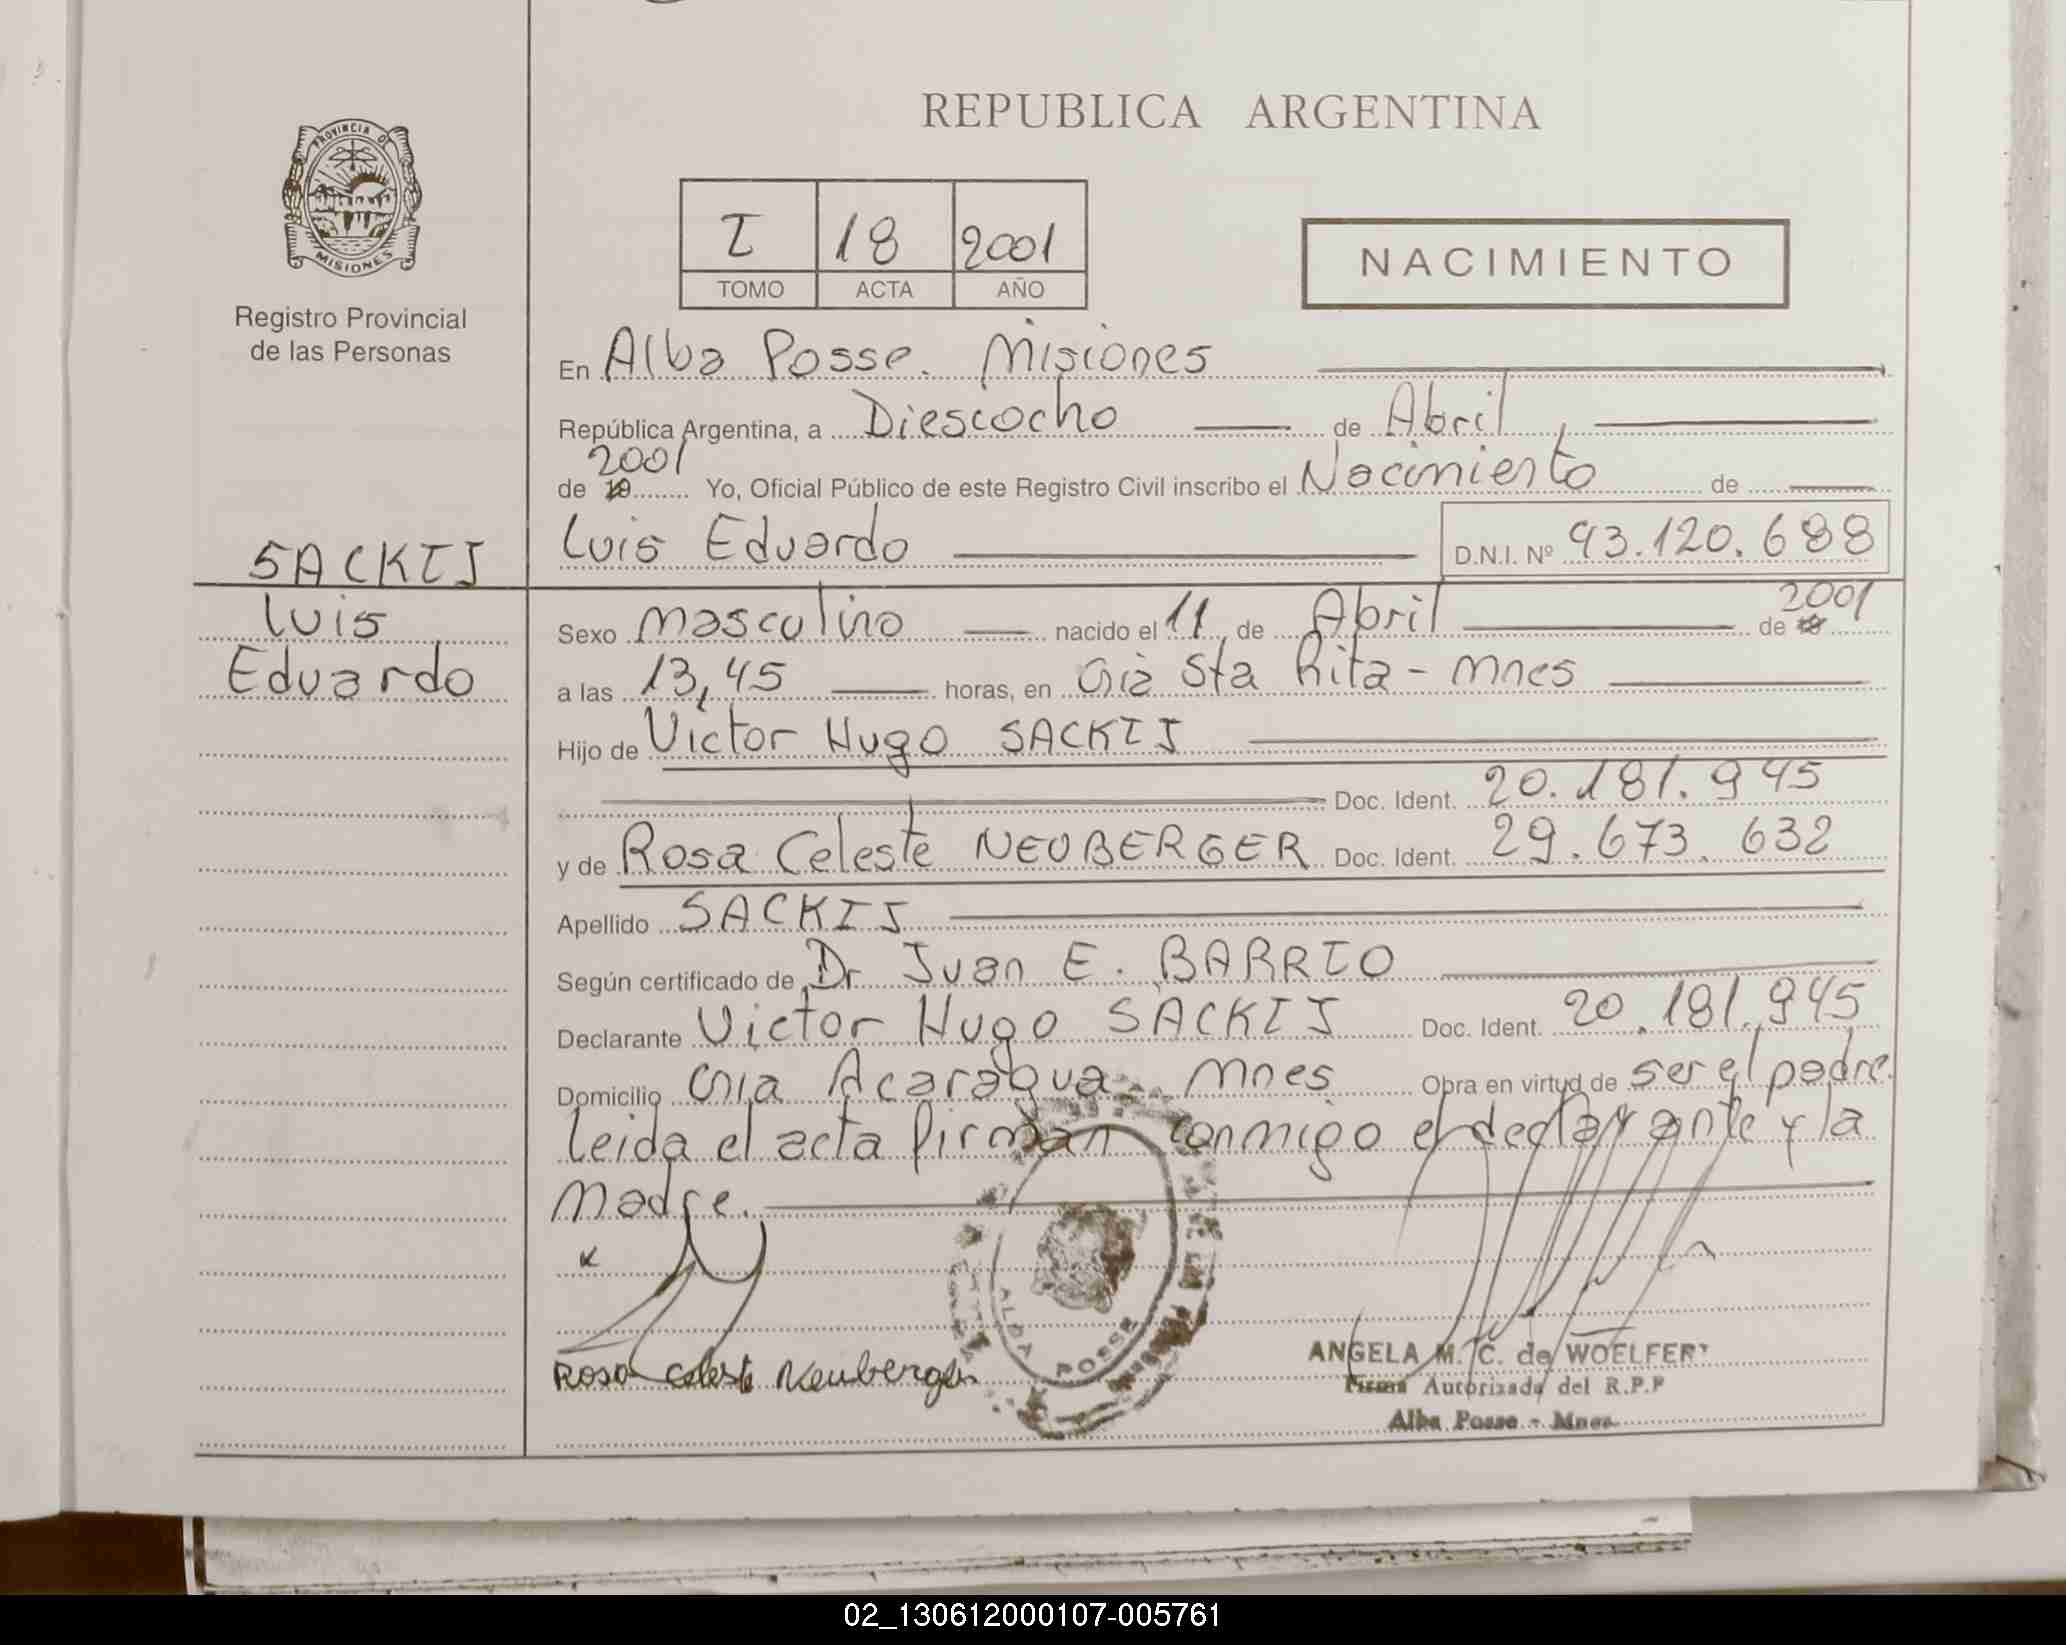 PROVINCIA DE
MISIONES
Registro Provincial
de las Personas
REPUBLICA ARGENTINA
I 18 2001
TOMO ACTA AÑO
NACIMIENTO
En Alba Posse. Misiones
República Argentina, a Diesciocho de Abril
2001
de 19 Yo, Oficial Público de este Registro Civil inscribo el Nacimiento de
Luis Eduardo D.N.I. Nº 43.120.688
SACKIJ
Luis
Eduardo
2001
Sexo masculino nacido el 11 de Abril de 19
a las 13,45 horas, en Cnia Sta Rita - Mnes
Hijo de Victor Hugo SACKIJ
Doc. Ident. 20.181.945
y de Rosa Celeste NEUBERGER Doc. Ident. 29.673.632
Apellido SACKIJ
Según certificado de Dr Juan E. BARRIO
Declarante Victor Hugo SACKIJ Doc. Ident. 20.181.945
Domicilio Cnia Acaragua. Mnes Obra en virtud de ser el padre.
Leida el acta firman conmigo el declarante y la
Madre.
ALBA POSSE
Rosa Celeste Neuberger
ANGELA M. C. de WOELFERT
Firma Autorizada del R.P.P
Alba Posse - Mnes.
02_130612000107-005761